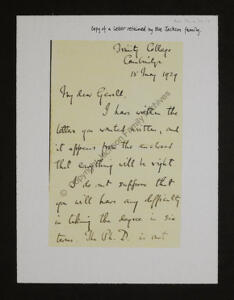 Copy of a letter retained by the Jackson family.
Trinity College
Cambridge
18 May 1929
My dear Gerald,
I have written the
letter you wanted written, and
it appears from the enclosed
that everything will be right
I do not suppose that
you will have any difficulty
in taking the degree in six
terms. The Ph.D. is not
Copyright Jackson Family Archives